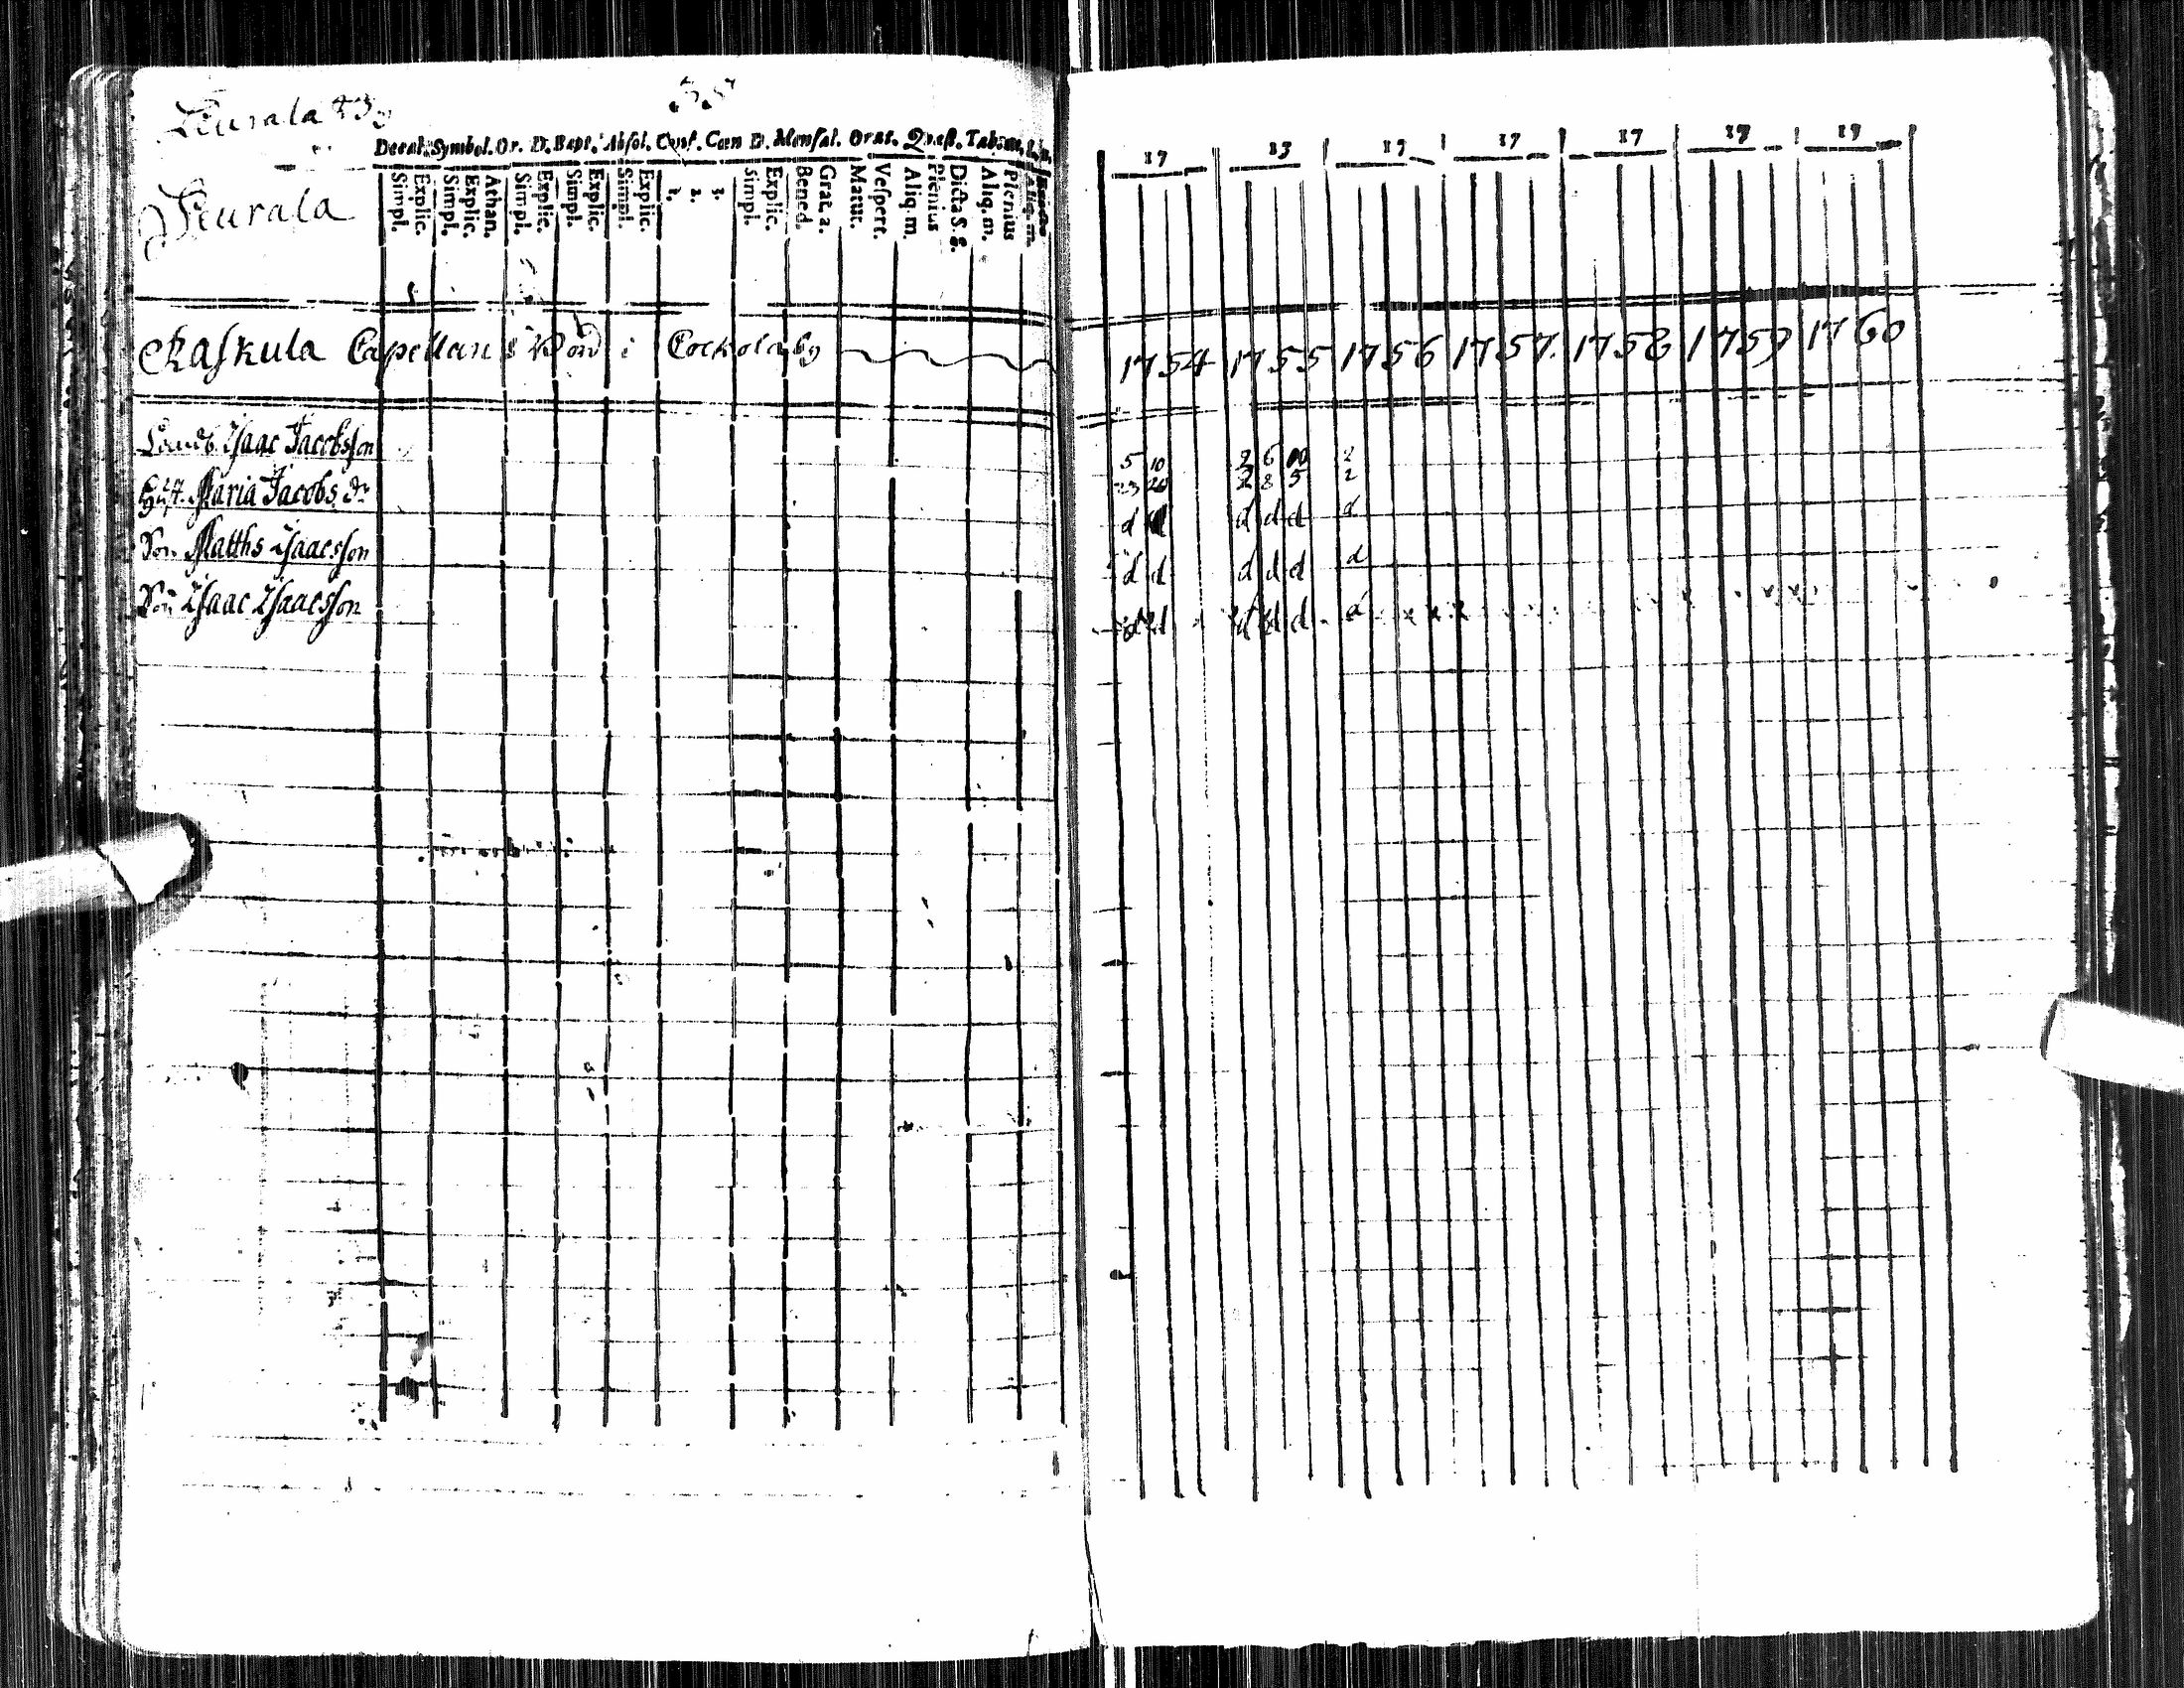 Leurala By
Decal. Symbol. Or. D. Bapt. Absol. Conf. Cœn D. Mensal. Orat. Quest. Tab.
Leurala
Simpl. Explic. Simpl. Explic. Athan. Simpl. Explic. Simpl. Explic. Simpl. Explic. 1. 2. 3. Simpl. Explic. Bened. Grat. a. Matut. Vespert. Aliq. m. Plenius Dicta S. S. Aliq. m. Plenius Aliq. m.
Kaskula Capellans Bord i Cockola by
Isaac Jacobsson
Hust. Maria Jacobs dr
Son Matths Isaacsson
Son Isaac Isaacsson
17 13 17 17 17 17 17
1754 1755 1756 1757. 1758 1759 1760
5 10 2 6 2
23 26 2 8 5 2
d d d d d d
d d d d d d
d d d d d d